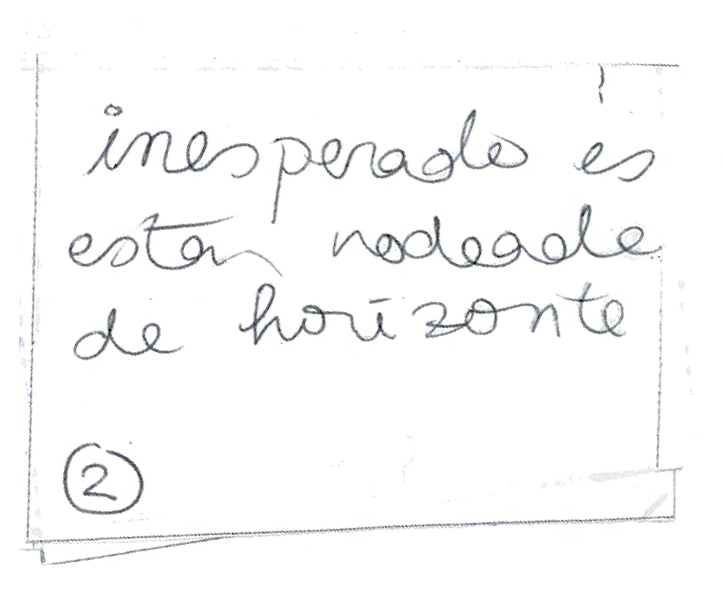 inesperado es
estar rodeade
de horizonte
2